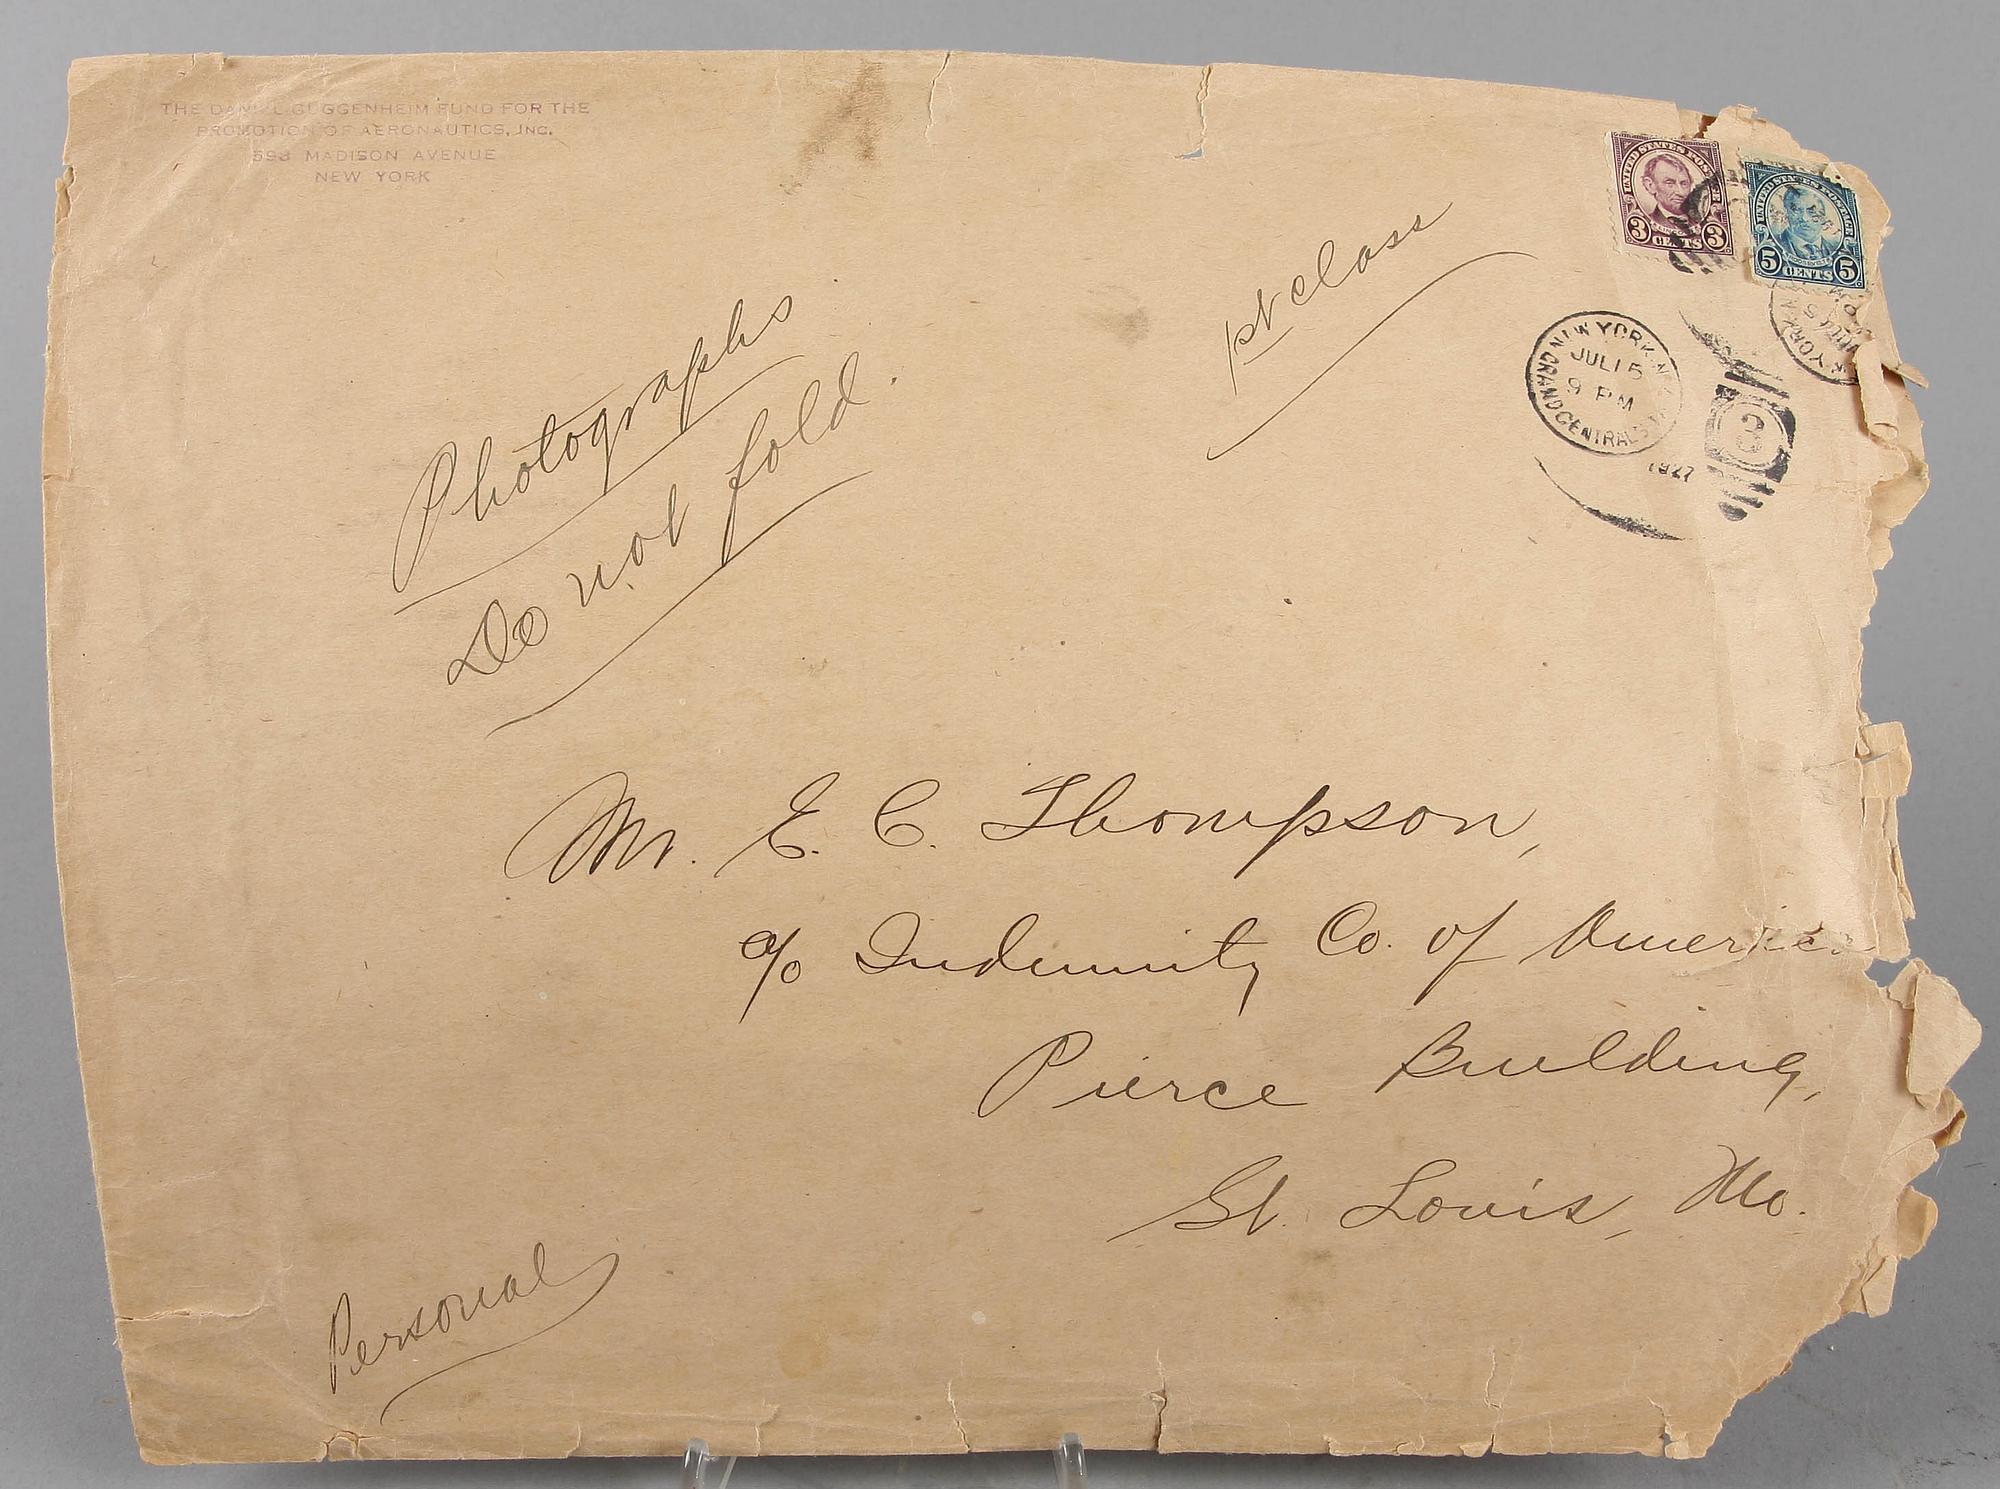 THE DANIEL GUGGENHEIM FUND FOR THE
PROMOTION OF AERONAUTICS, INC.
598 MADISON AVENUE
NEW YORK
UNITED STATES POSTAGE
LINCOLN
3 CENTS 3
UNITED STATES POSTAGE
ROOSEVELT
5 CENTS 5
1st class
Photographs
Do not fold.
NEW YORK, N.Y.
JUL 15
9 PM
GRAND CENTRAL STA.
1927
3
YORK
Mr. E. C. Thompson,
c/o Indemnity Co. of America
Pierce Building,
St. Louis, Mo.
Personal